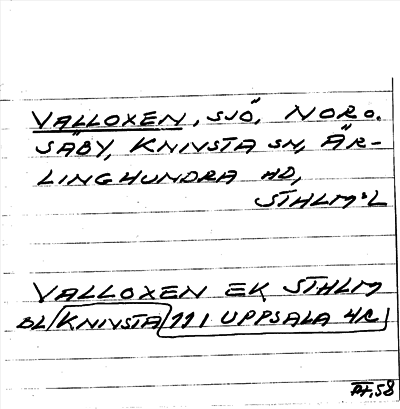 VALLOXEN, SJÖ, NOR O.
SÄBY, KNIVSTA SN, ÄR-
LINGHUNDRA HD,
STHLM:L
VALLOXEN EK STHLM
BL/KNIVSTA 11 I UPPSALA 4C